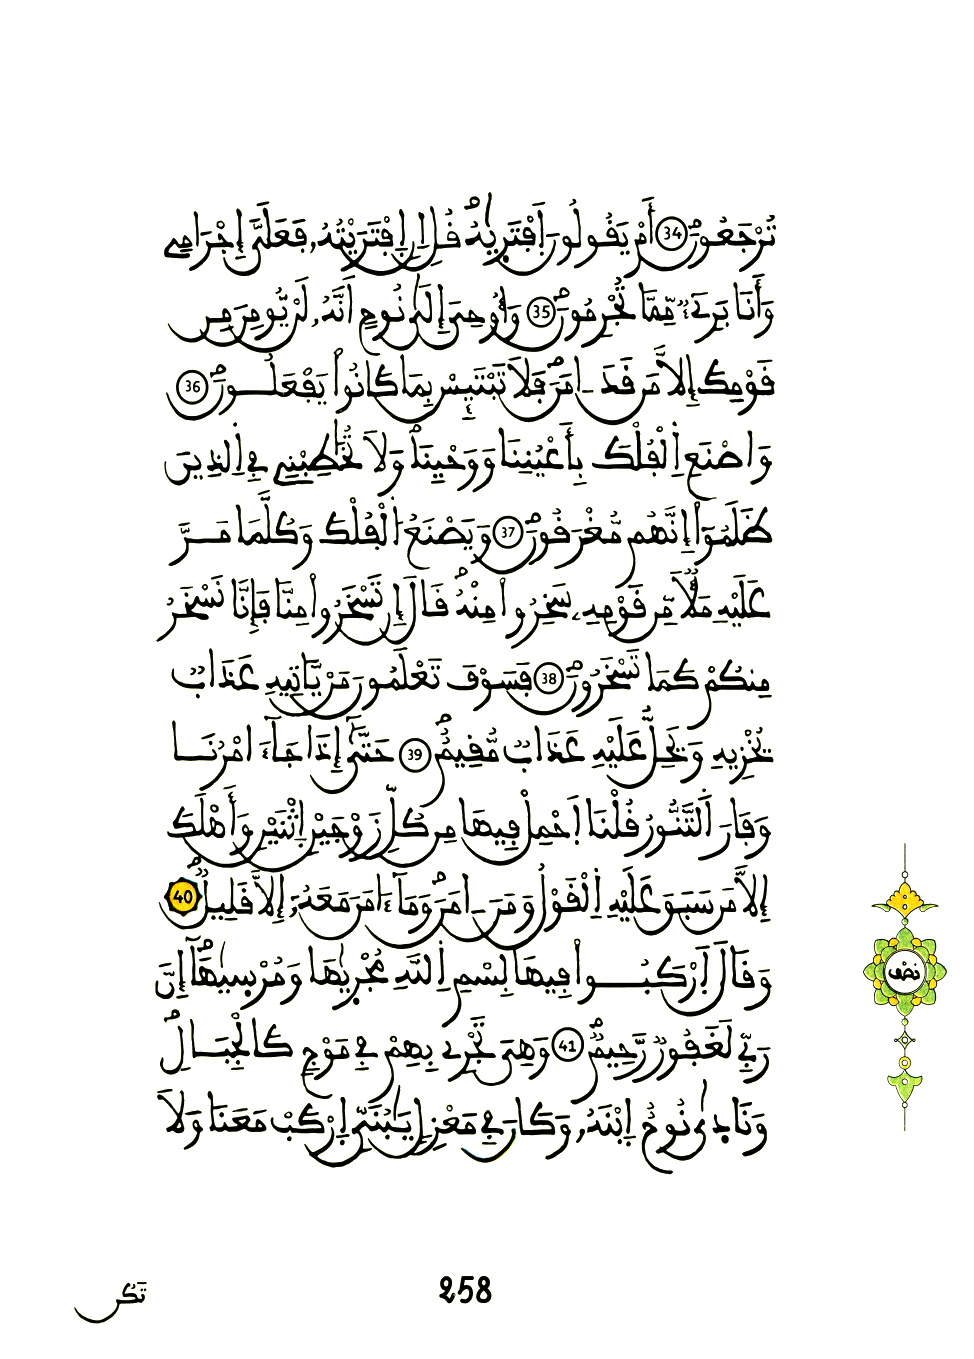 تُرْجَعُونَ 34 أَمْ يَقُولُونَ اَفْتَر۪يٰهُ قُلِ اِنِ اِفْتَرَيْتُهُۥ فَعَلَيَّ إِجْرَامِے
وَأَنَا بَرِےٓءٞ مِّمَّا تُجْرِمُونَ 35 وَأُوحِيَ إِلَيٰ نُوحٍ اَنَّهُۥ لَنْ يُّومِنَ مِن
قَوْمِكَ إِلَّا مَن قَدَ اٰمَنَ فَلَا تَبْتَئِسْ بِمَا كَانُواْ يَفْعَلُونَ 36
وَاصْنَعِ اِ۬لْفُلْكَ بِأَعْيُنِنَا وَوَحْيِنَا وَلَا تُخَٰطِبْنِے فِے اِ۬لذِينَ
ظَلَمُوٓاْ إِنَّهُم مُّغْرَقُونَ 37 وَيَصْنَعُ اُ۬لْفُلْكَ وَكُلَّمَا مَرَّ
عَلَيْهِ مَلَأٞ مِّن قَوْمِهِۦ سَخِرُواْ مِنْهُ قَالَ إِن تَسْخَرُواْ مِنَّا فَإِنَّا نَسْخَرُ
مِنكُمْ كَمَا تَسْخَرُونَ 38 فَسَوْفَ تَعْلَمُونَ مَنْ يَّاتِيهِ عَذَابٞ
يُخْزِيهِ وَيَحِلُّ عَلَيْهِ عَذَابٞ مُّقِيمٌ 39 حَتَّيٰٓ إِذَا جَآءَ امْرُنَا
وَفَارَ اَ۬لتَّنُّورُ قُلْنَا اَحْمِلْ فِيهَا مِن كُلِّ زَوْجَيْنِ اِثْنَيْنِ وَأَهْلَكَ
إِلَّا مَن سَبَقَ عَلَيْهِ اِ۬لْقَوْلُ وَمَنَ اٰمَنَ وَمَآ ءَامَنَ مَعَهُۥٓ إِلَّا قَلِيلٞ 40
وَقَالَ اَ۪رْكَبُواْ فِيهَا بِسْمِ اِ۬للَّهِ مُجْر۪يٰهَا وَمُرْس۪يٰهَآ إِنَّ
رَبِّے لَغَفُورٞ رَّحِيمٞ 41 وَهِيَ تَجْرِے بِهِمْ فِے مَوْجٖ كَالْجِبَالِ
وَنَاد۪يٰ نُوحٌ اِ۪بْنَهُۥ وَكَانَ فِے مَعْزِلٖ يَٰبُنَيِّ اِ۪رْكَب مَّعَنَا وَلَا
نصف
258
تَكُن